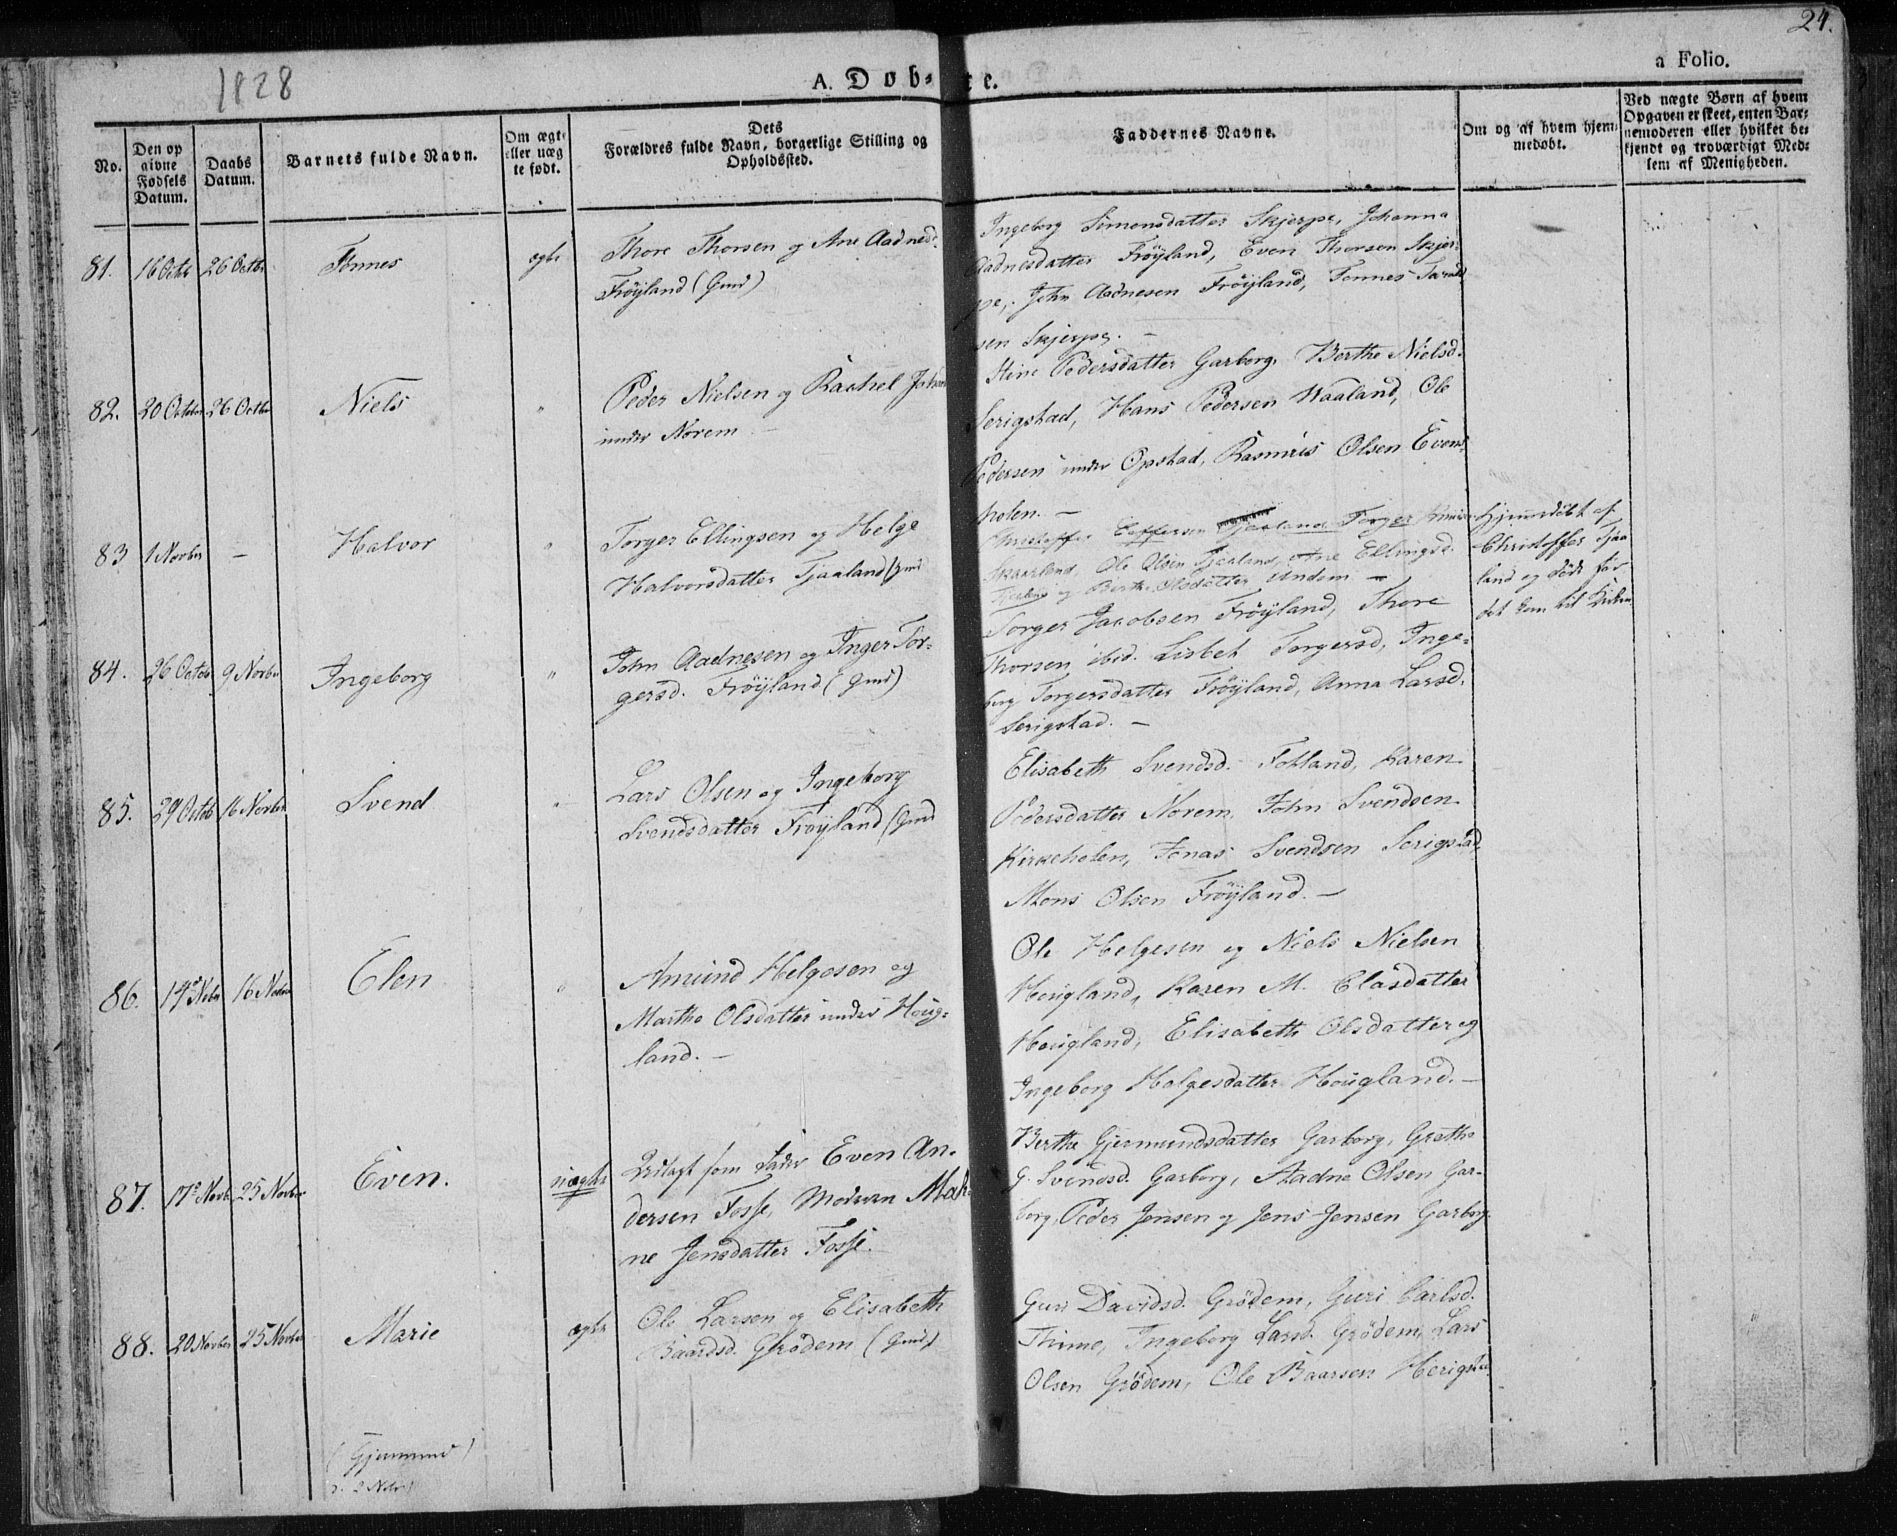 1828
24.
A. Døb=
te.
a Folio.
No.
Den op
givne
Fødsels
Datum.
Daabs
Datum.
Barnets fulde Navn.
Om ægte
eller uæg
te født.
Dets
Forældres fulde Navn, borgerlige Stilling og
Opholdssted.
Faddernes Navne.
Om og af hvem hjem=
medøbt.
Ved uægte Børn af hvem
Opgaven er skeet, enten Bar=
nemoderen eller hvilket be=
kjendt og troværdigt Med=
lem af Menigheden.
81. 16 Octb 26 Octb Tønnes ægte
Thore Thorsen og Ane Aadnesd.
Frøyland (Gmd)
Ingeborg Simonsdatter Skjerpe, Johanna
Aadnesdatter Frøyland, Even Thorsen Skjer=
pe, John Aadnesen Frøyland, Tønnes
sen Skjerpe. —
82. 20 October 26 Octbr Niels "
Peder Nielsen og Rachel
under Norem —
Stine Pedersdatter Garborg, Berthe Nielsd.
Serigstad, Hans Pedersen Waaland, Ole
Pedersen under Opstad, Rasmus Olsen Evens
holen. —
83 1 Novbr — Halvor "
Torger Ellingsen og Helge
Halvorsdatter Tjaaland (Gmd
Christoffer Tjaaland Torger
Skaarland, Ole Olsen Tjaaland, Ane Ellingsd.
og Berthe Olsdatter Undem —
Hjemdøbt af
Christoffer Tjaa
land og døde før
det kom til Kirken
84. 26 Octob 9 Novbr Ingeborg "
John Aadnesen og Inger Tor=
gersd. Frøyland (Gmd)
Torger Jacobsen Frøyland, Thore
Thorsen ibid. Lisbet Torgersd, Inge=
borg Torgersdatter Frøyland, Anna Larsd.
Serigstad. —
85. 29 Octob 16 Novbr Svend "
Lars Olsen og Ingeborg
Svendsdatter Frøyland (Gmd
Elisabeth Svendsd. Fotland, Karen
Pedersdatter Norem, John Svendsen
Kirkeholen, Jonas Svendsen Serigstad,
Mons Olsen Frøyland. —
86. 14 Novbr 16 Novbr Elen "
Amund Helgesen og
Marthe Olsdatter under Houg=
land. —
Ole Helgesen og Niels Nielsen
Hougland, Karen M. Elasdatter
Hougland, Elisabeth Olsdatter og
Ingeborg Helgesdatter Hougland. —
87. 17 Novbr 25 Novbr Even. uægte
Udlagt som Fader Even An=
dersen Fosse, Moderen Mal=
ne Jensdatter Fosse.
Berthe Gjermundsdatter Garborg, Grethe
G. Svendsd. Garborg, Aadne Olsen Gar=
borg, Peder Jensen og Jens Jensen Garborg.
88. 20 Novber 25 Novbr Marie ægte
Ole Larsen og Elisabeth
Baardsd. Grødem (Gmd)
Guri Davidsd. Grødem, Guri Carlsd.
Thime, Ingeborg Larsd. Grødem, Lars
Olsen Grødem, Ole Baarsen Herigstad
(Gjermund)